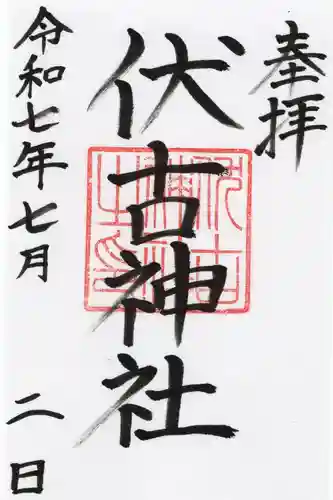 奉拝
伏古神社
令和七年七月二日